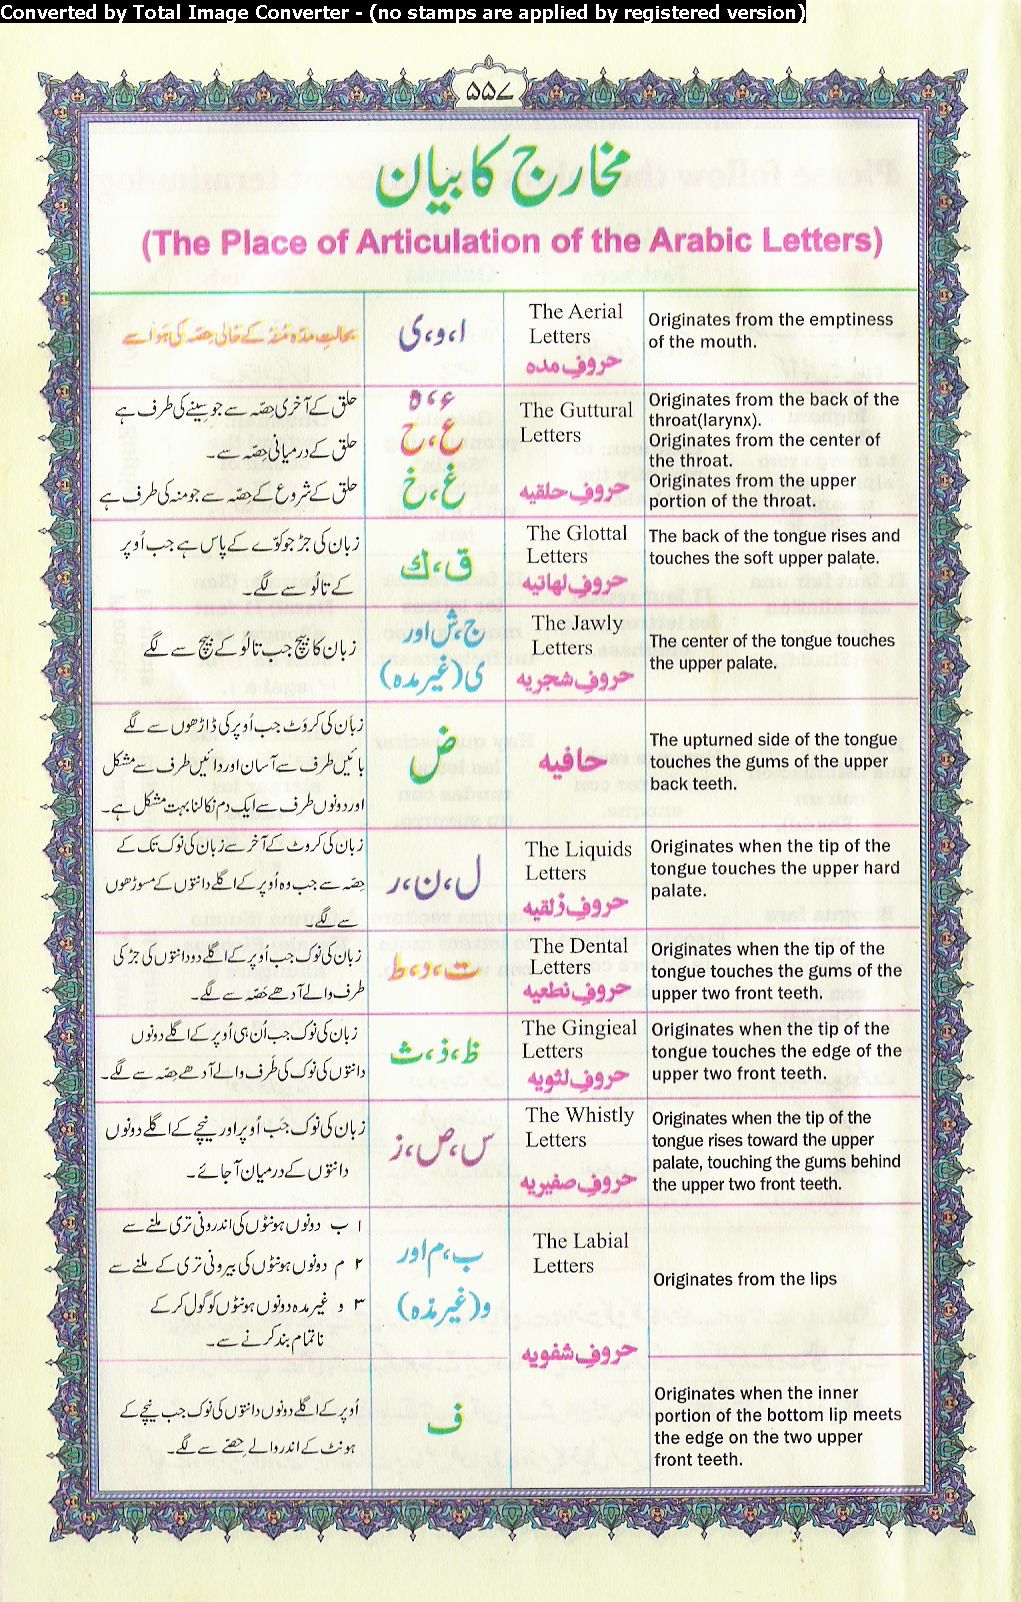 Converted by Total Image Converter - (no stamps are applied by registered version)
۵۵۷
مخارج کا بیان
(The Place of Articulation of the Arabic Letters)
بحالتِ مدّہ مُنہ کے خالی حِصّہ کی ہَوا سے
ا، و، ی
The Aerial
Letters
حروفِ مدہ
Originates from the emptiness
of the mouth.
حلق کے آخری حِصّہ سے جو سینے کی طرف ہے
حلق کے درمیانی حِصّہ سے۔
حلق کے شروع کے حِصّہ سے جو منہ کی طرف ہے
ء، ہ
ع، ح
غ، خ
The Guttural
Letters
حروفِ حلقیه
Originates from the back of the
throat(larynx).
Originates from the center of
the throat.
Originates from the upper
portion of the throat.
زبان کی جڑ جو کوّے کے پاس ہے جب اُوپر
کے تالُو سے لگے۔
ق، ك
The Glottal
Letters
حروفِ لهاتیه
The back of the tongue rises and
touches the soft upper palate.
زبان کا بیچ جب تالو کے بیچ سے لگے
ج، ش اور
ی (غیر مدہ)
The Jawly
Letters
حروفِ شجریه
The center of the tongue touches
the upper palate.
زبان کی کروَٹ جب اُوپر کی ڈاڑھوں سے لگے
بائیں طرف سے آسان اور دائیں طرف سے مشکل
اور دونوں طرف سے ایک دم نکالنا بہت مشکل ہے۔
ض
حافیه
The upturned side of the tongue
touches the gums of the upper
back teeth.
زبان کی کروٹ کے آخر سے زبان کی نوک تک کے
حِصّہ سے جب وہ اُوپر کے اگلے دانتوں کے مسوڑھوں
سے لگے۔
ل، ن، ر
The Liquids
Letters
حروفِ ذلقیه
Originates when the tip of the
tongue touches the upper hard
palate.
زبان کی نوک جب اُوپر کے اگلے دو دانتوں کی جڑ کی
طرف والے آدھے حِصّہ سے لگے۔
ت، د، ط
The Dental
Letters
حروفِ نطعیه
Originates when the tip of the
tongue touches the gums of the
upper two front teeth.
زبان کی نوک جب اُن ہی اُوپر کے اگلے دونوں
دانتوں کی نوک کی طرف والے آدھے حِصّہ سے لگے۔
ظ، ذ، ث
The Gingieal
Letters
حروفِ لثویه
Originates when the tip of the
tongue touches the edge of the
upper two front teeth.
زبان کی نوک جَب اُوپر اور نیچے کے اگلے دونوں
دانتوں کے درمیان آ جائے۔
س، ص، ز
The Whistly
Letters
حروفِ صفیریه
Originates when the tip of the
tongue rises toward the upper
palate, touching the gums behind
the upper two front teeth.
۱ ب دونوں ہونٹوں کی اندرونی تری ملنے سے
۲ م دونوں ہونٹوں کی بیرونی تری کے ملنے سے
۳ و غیر مدہ دونوں ہونٹوں کو گول کر کے
ناتمام بند کرنے سے۔
ب، م اور
و (غیر مدّہ)
The Labial
Letters
حروفِ شفویه
Originates from the lips
اُوپر کے اگلے دونوں دانتوں کی نوک جب نیچے کے
ہونٹ کے اندر والے حِصّے سے لگے۔
ف
Originates when the inner
portion of the bottom lip meets
the edge on the two upper
front teeth.